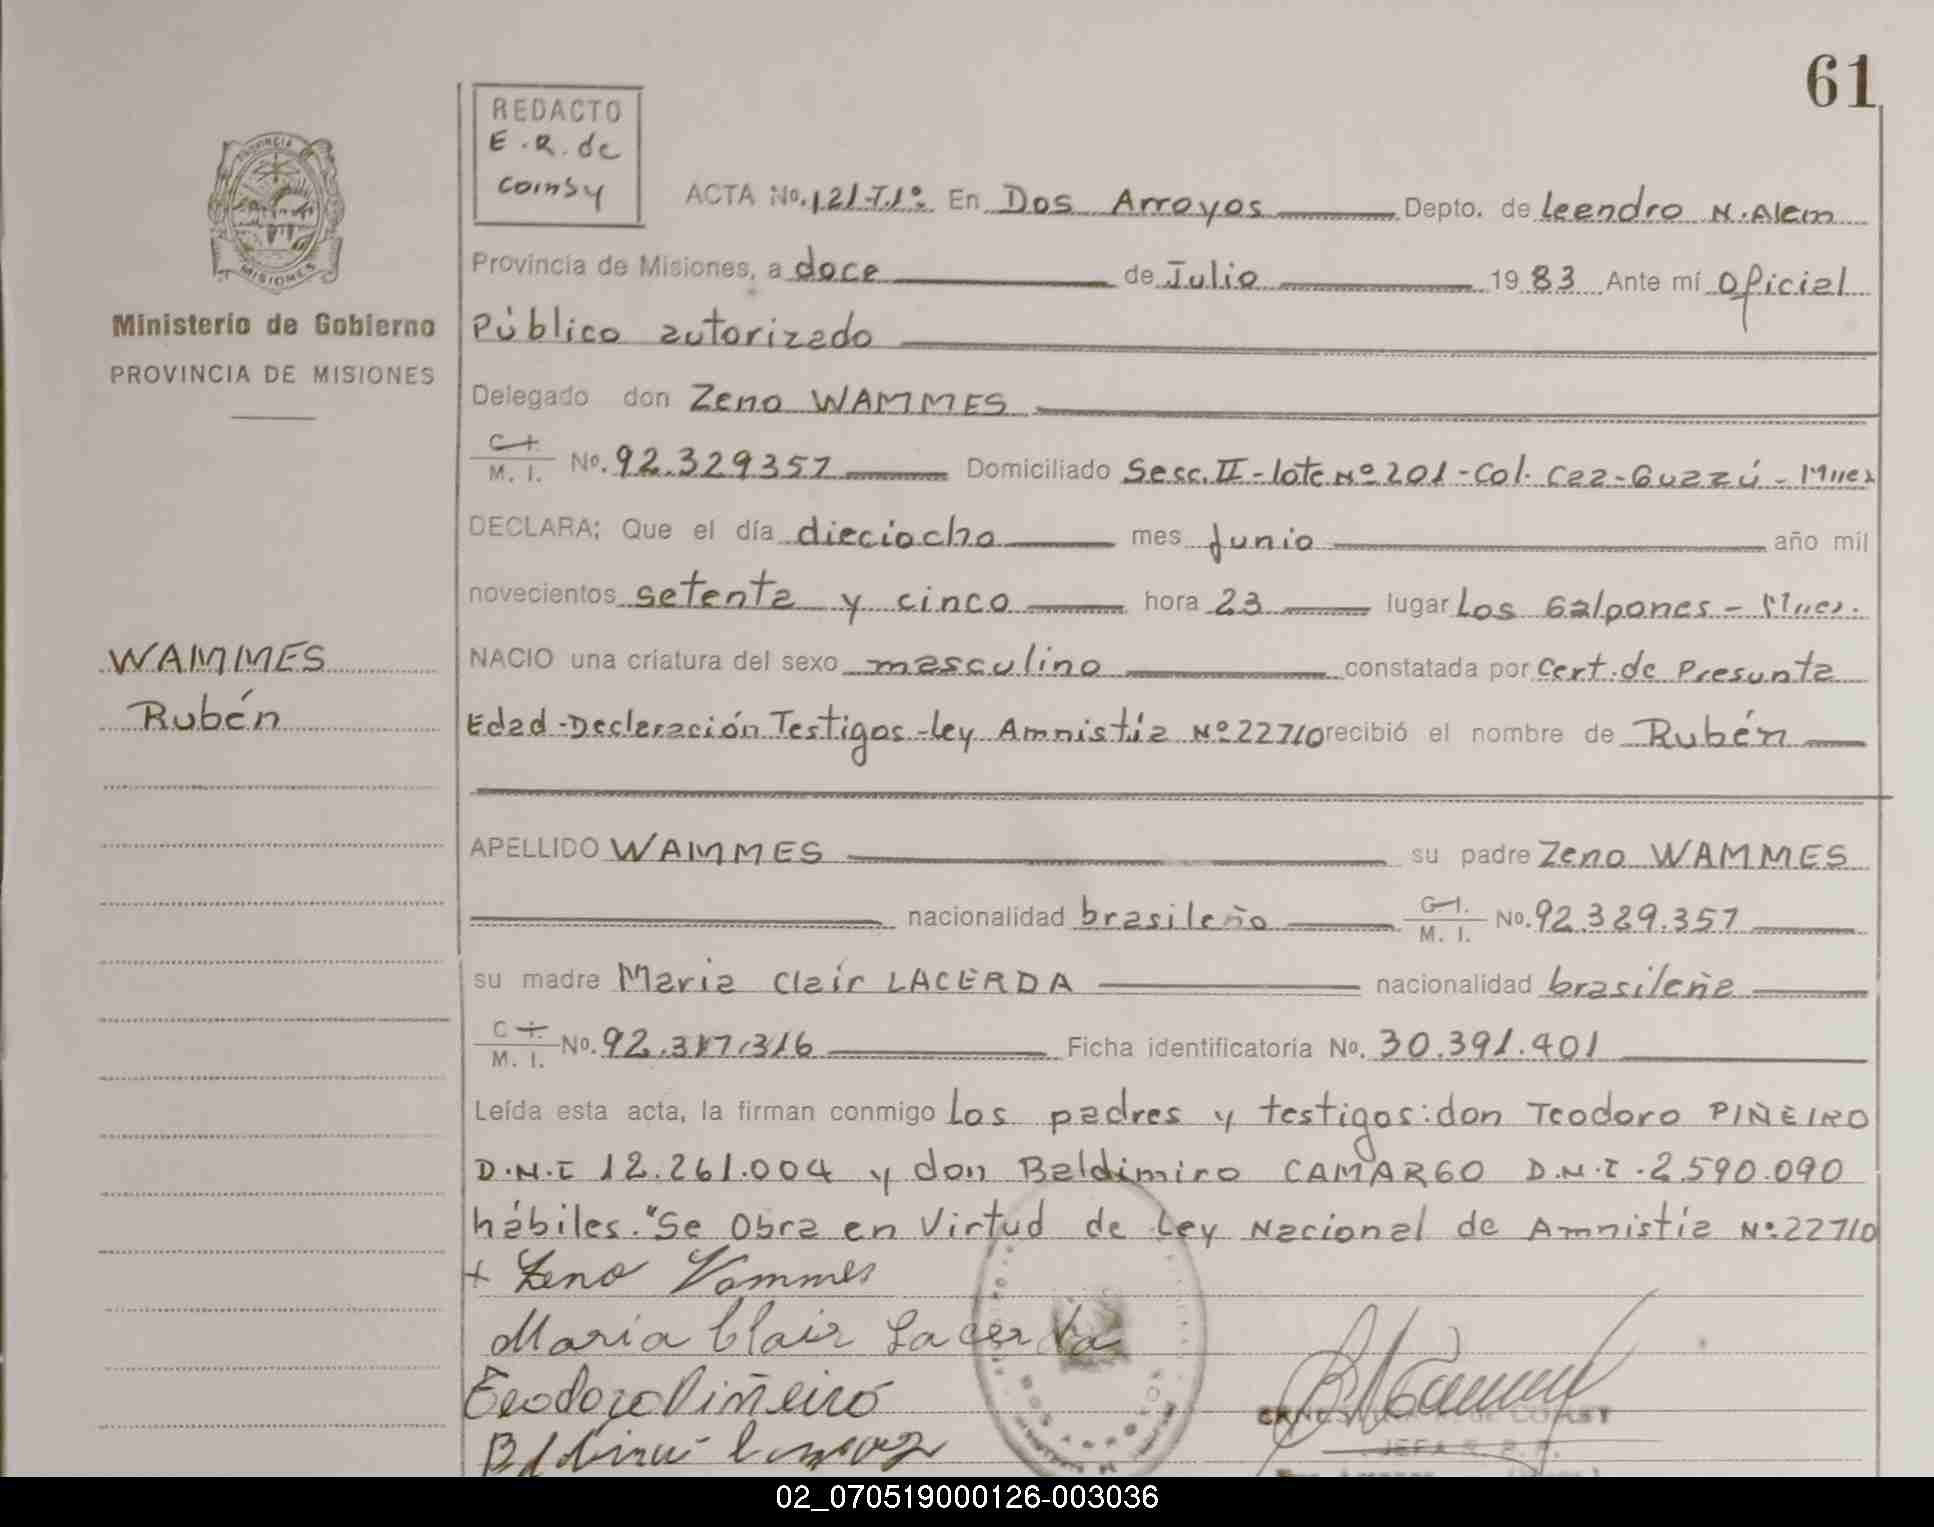 61
PROVINCIA
MISIONES
Ministerio de Gobierno
PROVINCIA DE MISIONES
WAMMES
Rubén
REDACTO
E.R. de
ACTA No. 121-T.1º En Dos Arroyos Depto. de Leandro N. Alem
Provincia de Misiones, a doce de Julio 1983 Ante mí Oficial
Público autorizado
Delegado don Zeno WAMMES
C.I. M. I. No. 92.329357 Domiciliado Secc. II - lote Nº 201 - Col. Caa-Guazú - Mnes
DECLARA; Que el día dieciocho mes Junio año mil
novecientos setenta y cinco hora 23 lugar Los Galpones - Mnes.
NACIO una criatura del sexo masculino constatada por Cert. de Presunta
Edad - Declaración Testigos - Ley Amnistía Nº 22710 recibió el nombre de Rubén
APELLIDO WAMMES su padre Zeno WAMMES
nacionalidad brasileño C.I. M. I. No. 92.329.357
su madre Maria Clair LACERDA nacionalidad brasileña
C.I. M. I. No. 92.317.316 Ficha identificatoria No. 30.391.401
Leída esta acta, la firman conmigo Los padres y testigos: don Teodoro PIÑEIRO
D.N.I 12.261.004 y don Baldimiro CAMARGO D.N.I. 2.590.090
hábiles. "Se Obra en Virtud de Ley Nacional de Amnistía Nº 22710
+ Zeno Vammes
Maria Clair Lacerda
Teodoro Piñeiro
JEFA
02_070519000126-003036